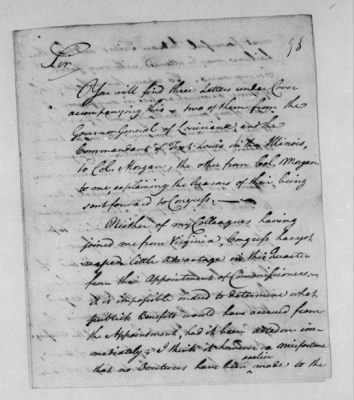 93
Sir
You will find three Letters under Cover
accompanying this – two of them from the
Governor General of Louisiana, and the
Commandant of Fort Louis in the Illinois,
to Col. Morgan, the other from Col. Morgan
to me, explaining the Reasons of their being
sent forward to Congress. —
Neither of my Colleagues having
joined me from Virginia, Congress has yet
reaped little Advantage in this quarter
from their Appointment of Commissioners. —
It is impossible indeed to determine what
publick Benefits would have accrued from
the Appointment, had it been acted on im-
mediately; I think it however a misfortune
earlier
that no Overtures have been made to the